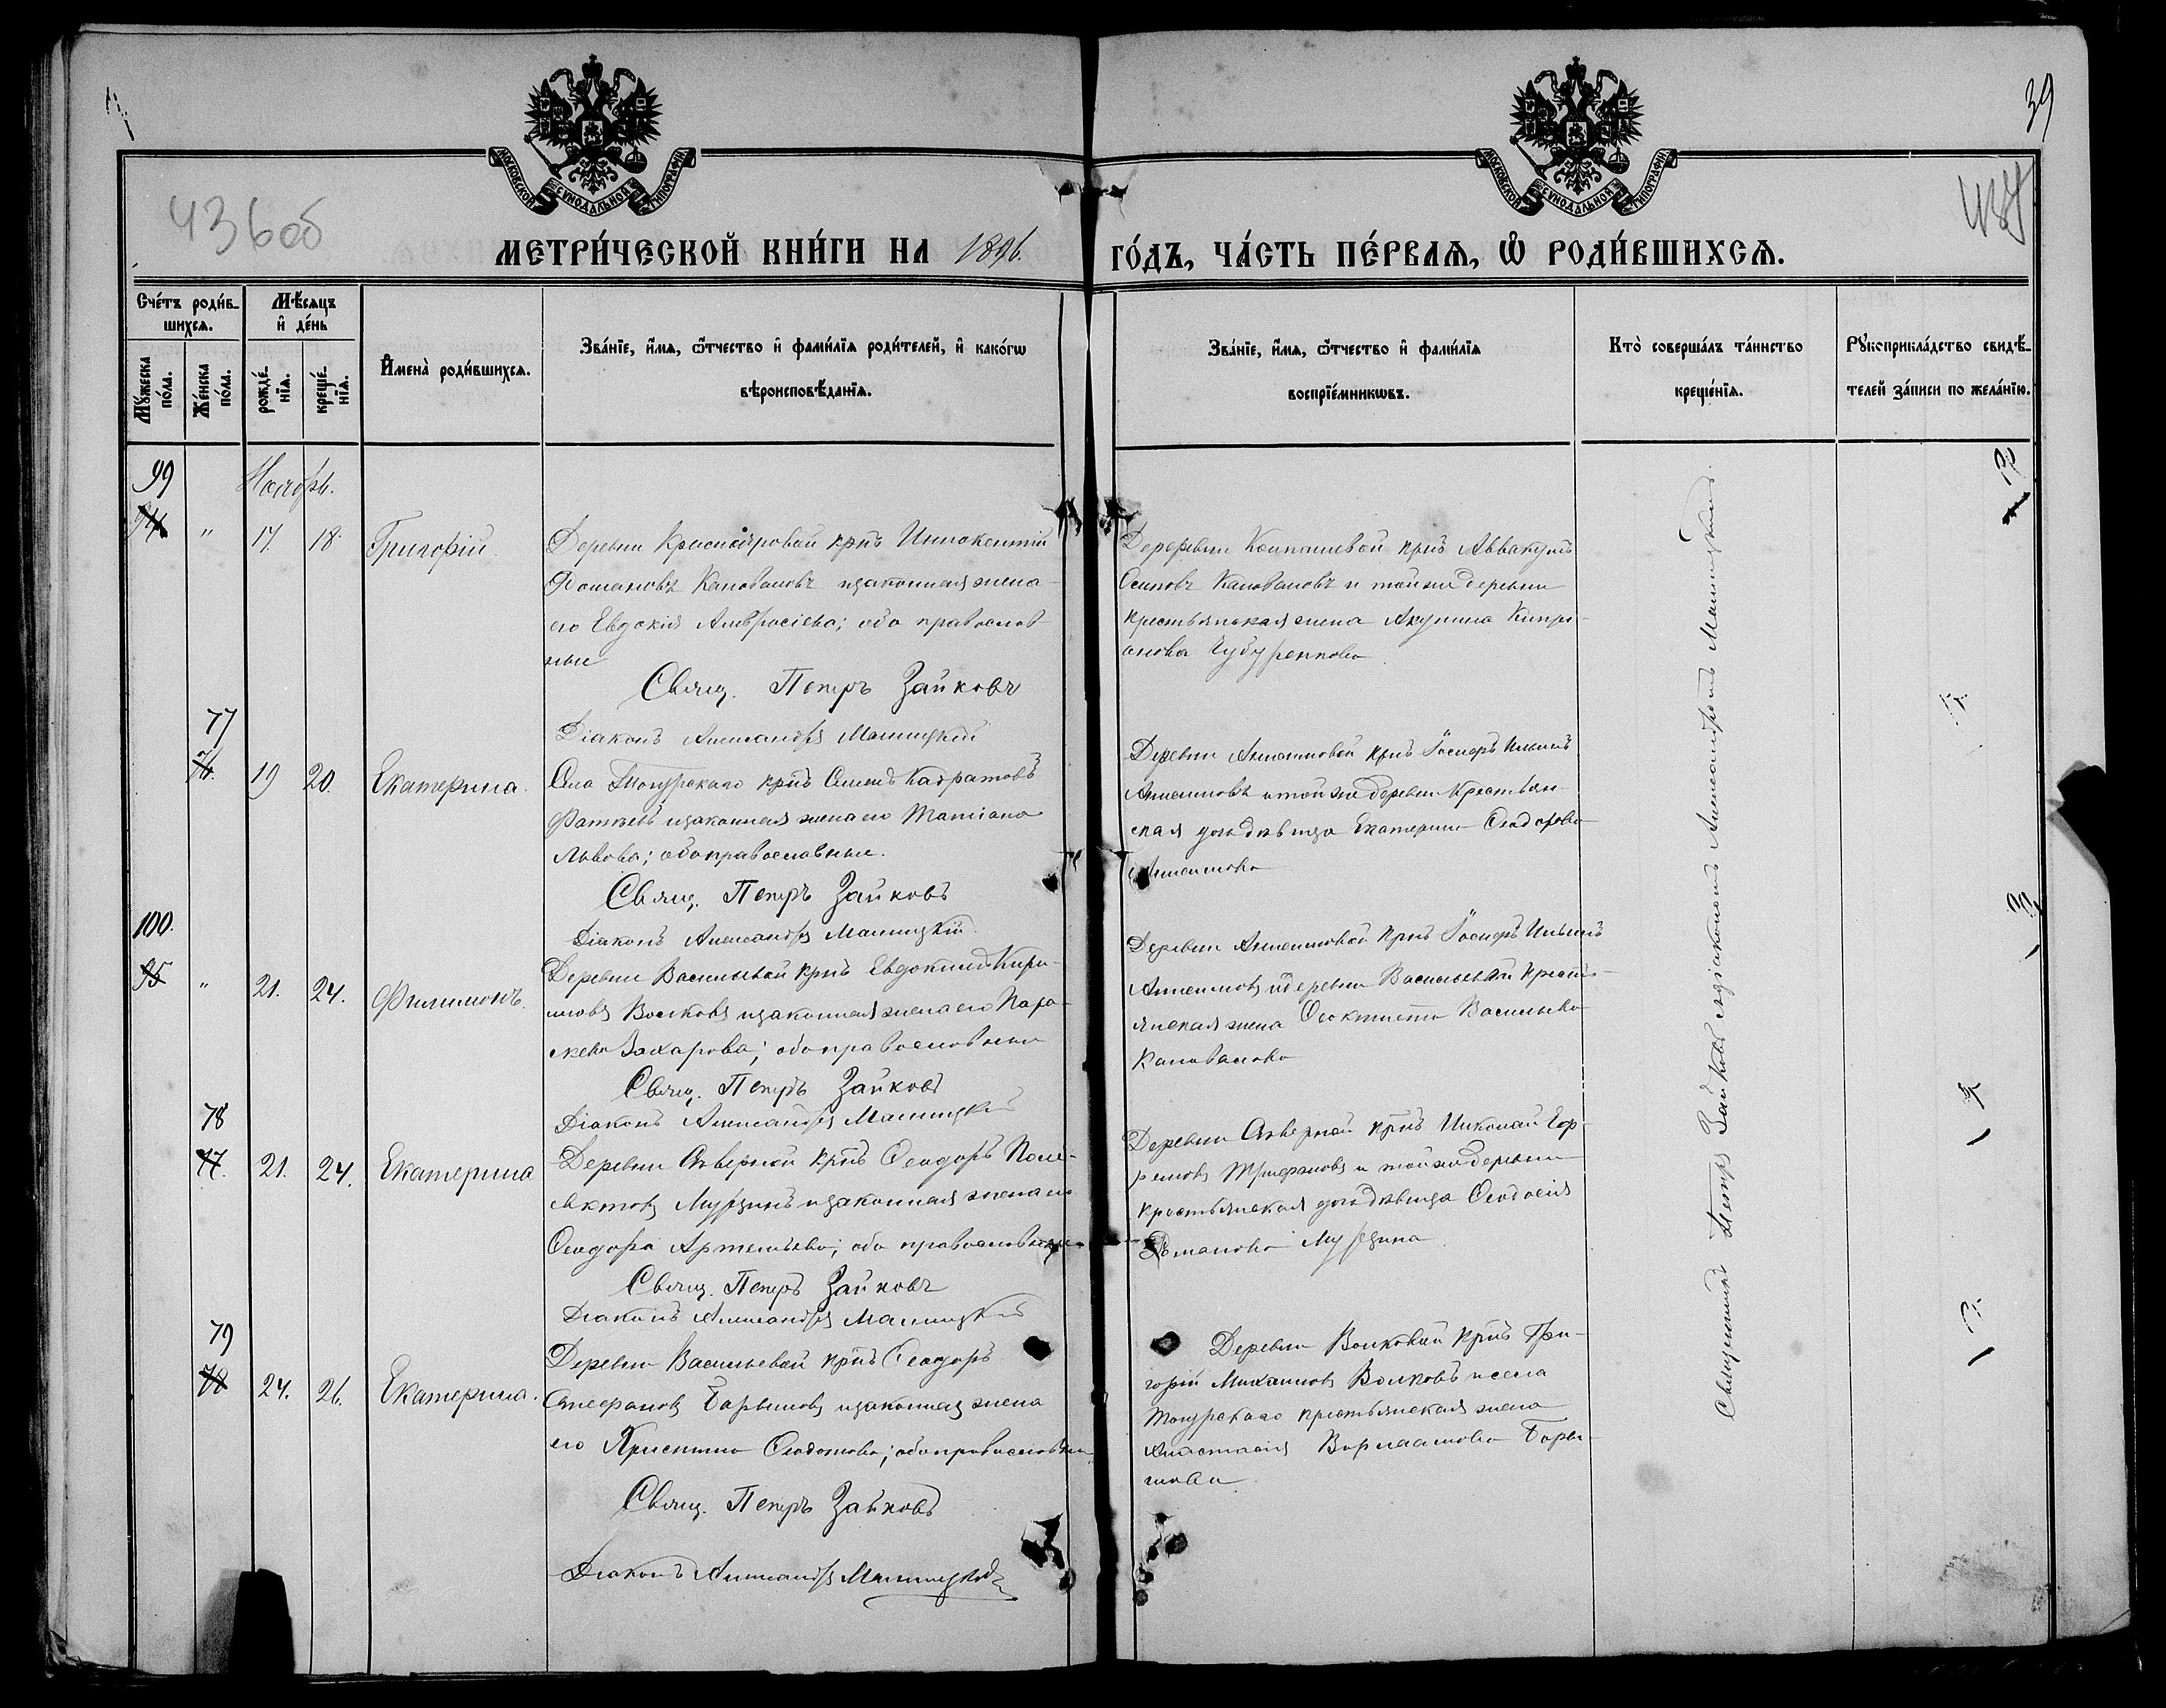 39
436 об
МОСКОВСКОЙ СУНОДАЛЬНОЙ ТИПОГРАФІИ
МОСКОВСКОЙ СУНОДАЛЬНОЙ ТИПОГРАФІИ
МЕТРИ́ЧЕСКОЙ КНИ́ГИ НА 1896. ГО́ДЪ, ЧА́СТЬ ПЕ́РВАѦ, Ѡ҆ РОДИ́ВШИХСѦ.
Сче́тъ роди́в-
шихсѧ.
Мꙋ́жеска
по́ла.
Же́нска
по́ла.
Мѣ́сѧцъ
и҆ де́нь
рожде́-
нїѧ.
креще́-
нїѧ.
И҆мена̀ роди́вшихсѧ.
Зва́нїе, и҆́мѧ, ѻ҆́тчество и҆ фами́лїѧ роди́телей, и҆ како́гѡ
вѣроисповѣ́данїѧ.
Зва́нїе, и҆́мѧ, ѻ҆́тчество и҆ фами́лїѧ
воспрїе́мникѡвъ.
Кто̀ соверша́лъ та́инство
креще́нїѧ.
Рꙋкоприкла́дство свидѣ́-
телей за́писи по жела́нїю.
Ноябрь.
99
94
"
17.
18.
Григорій.
Деревни Краснояровой крнъ Иннокентій
Романовъ Коноваловъ и законная жена
его Евдокія Амвросіева; оба православ
ные
Свящ. Петръ Зайковъ
Діаконъ Александръ Малицкій
Деревни крнъ Аввакумъ
Осиповъ Коноваловъ и той же деревни
крестьянская жена Акулина Кипрі-
анова
77
76.
19
20.
Екатерина.
Села Тогурскаго крнъ
и законная жена его Татіана
Львова; оба православные.
Свящ. Петръ Зайковъ
Діаконъ Александръ Малицкій
Деревни Анисимовой крнъ Іосифъ Ильинъ
Анисимовъ и той же деревни крестьян-
ская дочь дѣвица Екатерина Ѳеодорова
Анисимова
100.
95
"
21.
24.
Филимонъ.
Деревни Васильевой крнъ Евдокимъ Кири-
ловъ Волковъ и законная жена его Пара-
скева Захарова; оба православные
Свящ. Петръ Зайковъ
Діаконъ Александръ Малицкій
Деревни Анисимовой крнъ Іосифъ Ильинъ
Анисимовъ и деревни Васильевой крестья-
янская жена Ѳеоктиста Васильева
Коновалова
78
77.
21.
24.
Екатерина
Деревни Сѣверной крнъ Ѳеодоръ Поли-
евктовъ Мурзинъ и законная жена его
Ѳеодора Артемьева; оба православные
Свящ. Петръ Зайковъ
Діаконъ Александръ Малицкій
Деревни Сѣверной крнъ Николай
Трифоновъ и той же деревни
крестьянская дочь дѣвица Ѳеодосія
Романова Мурзина
79
78
24.
26.
Екатерина.
Деревни Васильевой крнъ Ѳеодоръ
Стефановъ Барышовъ и законная жена
его Христина Ѳедотова; оба православные
Свящ. Петръ Зайковъ
Діаконъ Александръ Малицкій
Деревни Волковой крнъ Гри-
горій Михаиловъ Волковъ и села
Тогурскаго крестьянская жена
Анастасія Варлаамова Бары-
шова
Священникъ Петръ Зайковъ съ діакономъ Александромъ Малицкимъ.